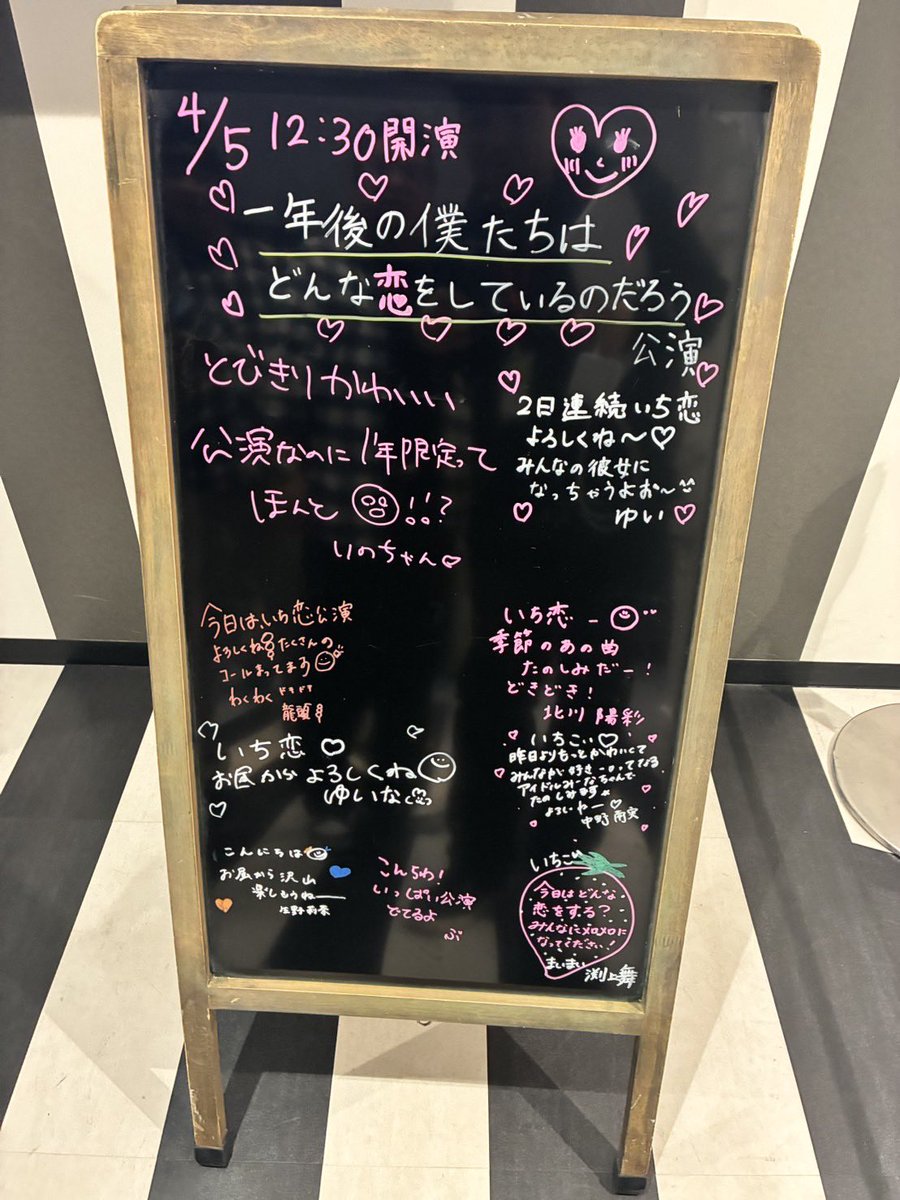 4/5 12:30開演
一年後の僕たちは
どんな恋をしているのだろう
公演
とびきりかわいい
公演なのに1年限定って
ほんと!!?
いのちゃん♡
2日連続いち恋
よろしくね〜♡
みんなの彼女に
なっちゃうよお〜
ゆい
今日はいち恋公演
よろしくね たくさんの
コールまってます
わくわく ドキドキ
龍頭
いち恋
季節のあの曲
たのしみだー!
どきどき!
北川 陽彩
いち恋♡
お昼からよろしくね
ゆいな
いちこい♡
昨日よりもっとかわいくて
みんなが好きーってなる
アイドルみーなちゃんで
たのしみます
よろしくねー♡
こんにちは
お昼から沢山
楽しもうねー
こんちわ!
いっぱい公演
でてるよ
ぷ
いちごい
今日はどんな
恋をする?
みんなにメロメロに
なってください!
まいまい
渕上舞